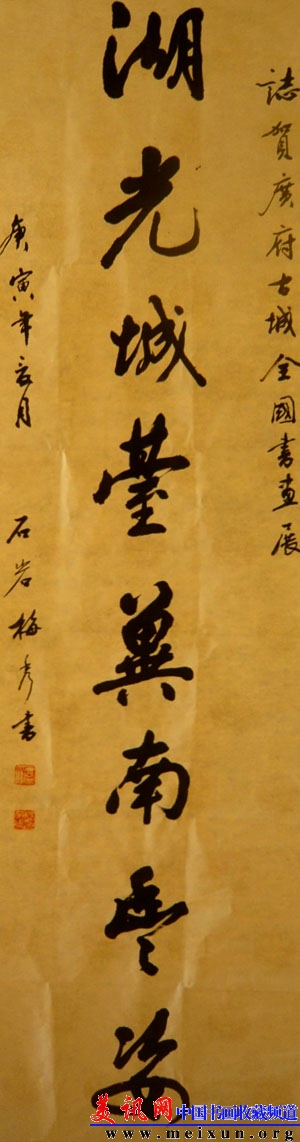 誌賀廣府古城全國書畫展
湖光城臺冀南豐姿
庚寅年亥月
石岩梅秀書
美讯网 中国书画收藏频道
www.meixun.org